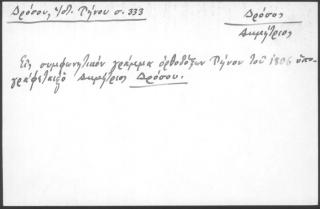 Δρόσου, Ἱστ. Τήνου σ. 333
Δρόσος
Δημήτριος
Εἰς συμφωνητικόν γράμμα ὀρθοδόξων Τήνου τοῦ 1806 ὑπο-
γράφεται ὁ Δημήτριος Δρόσου.